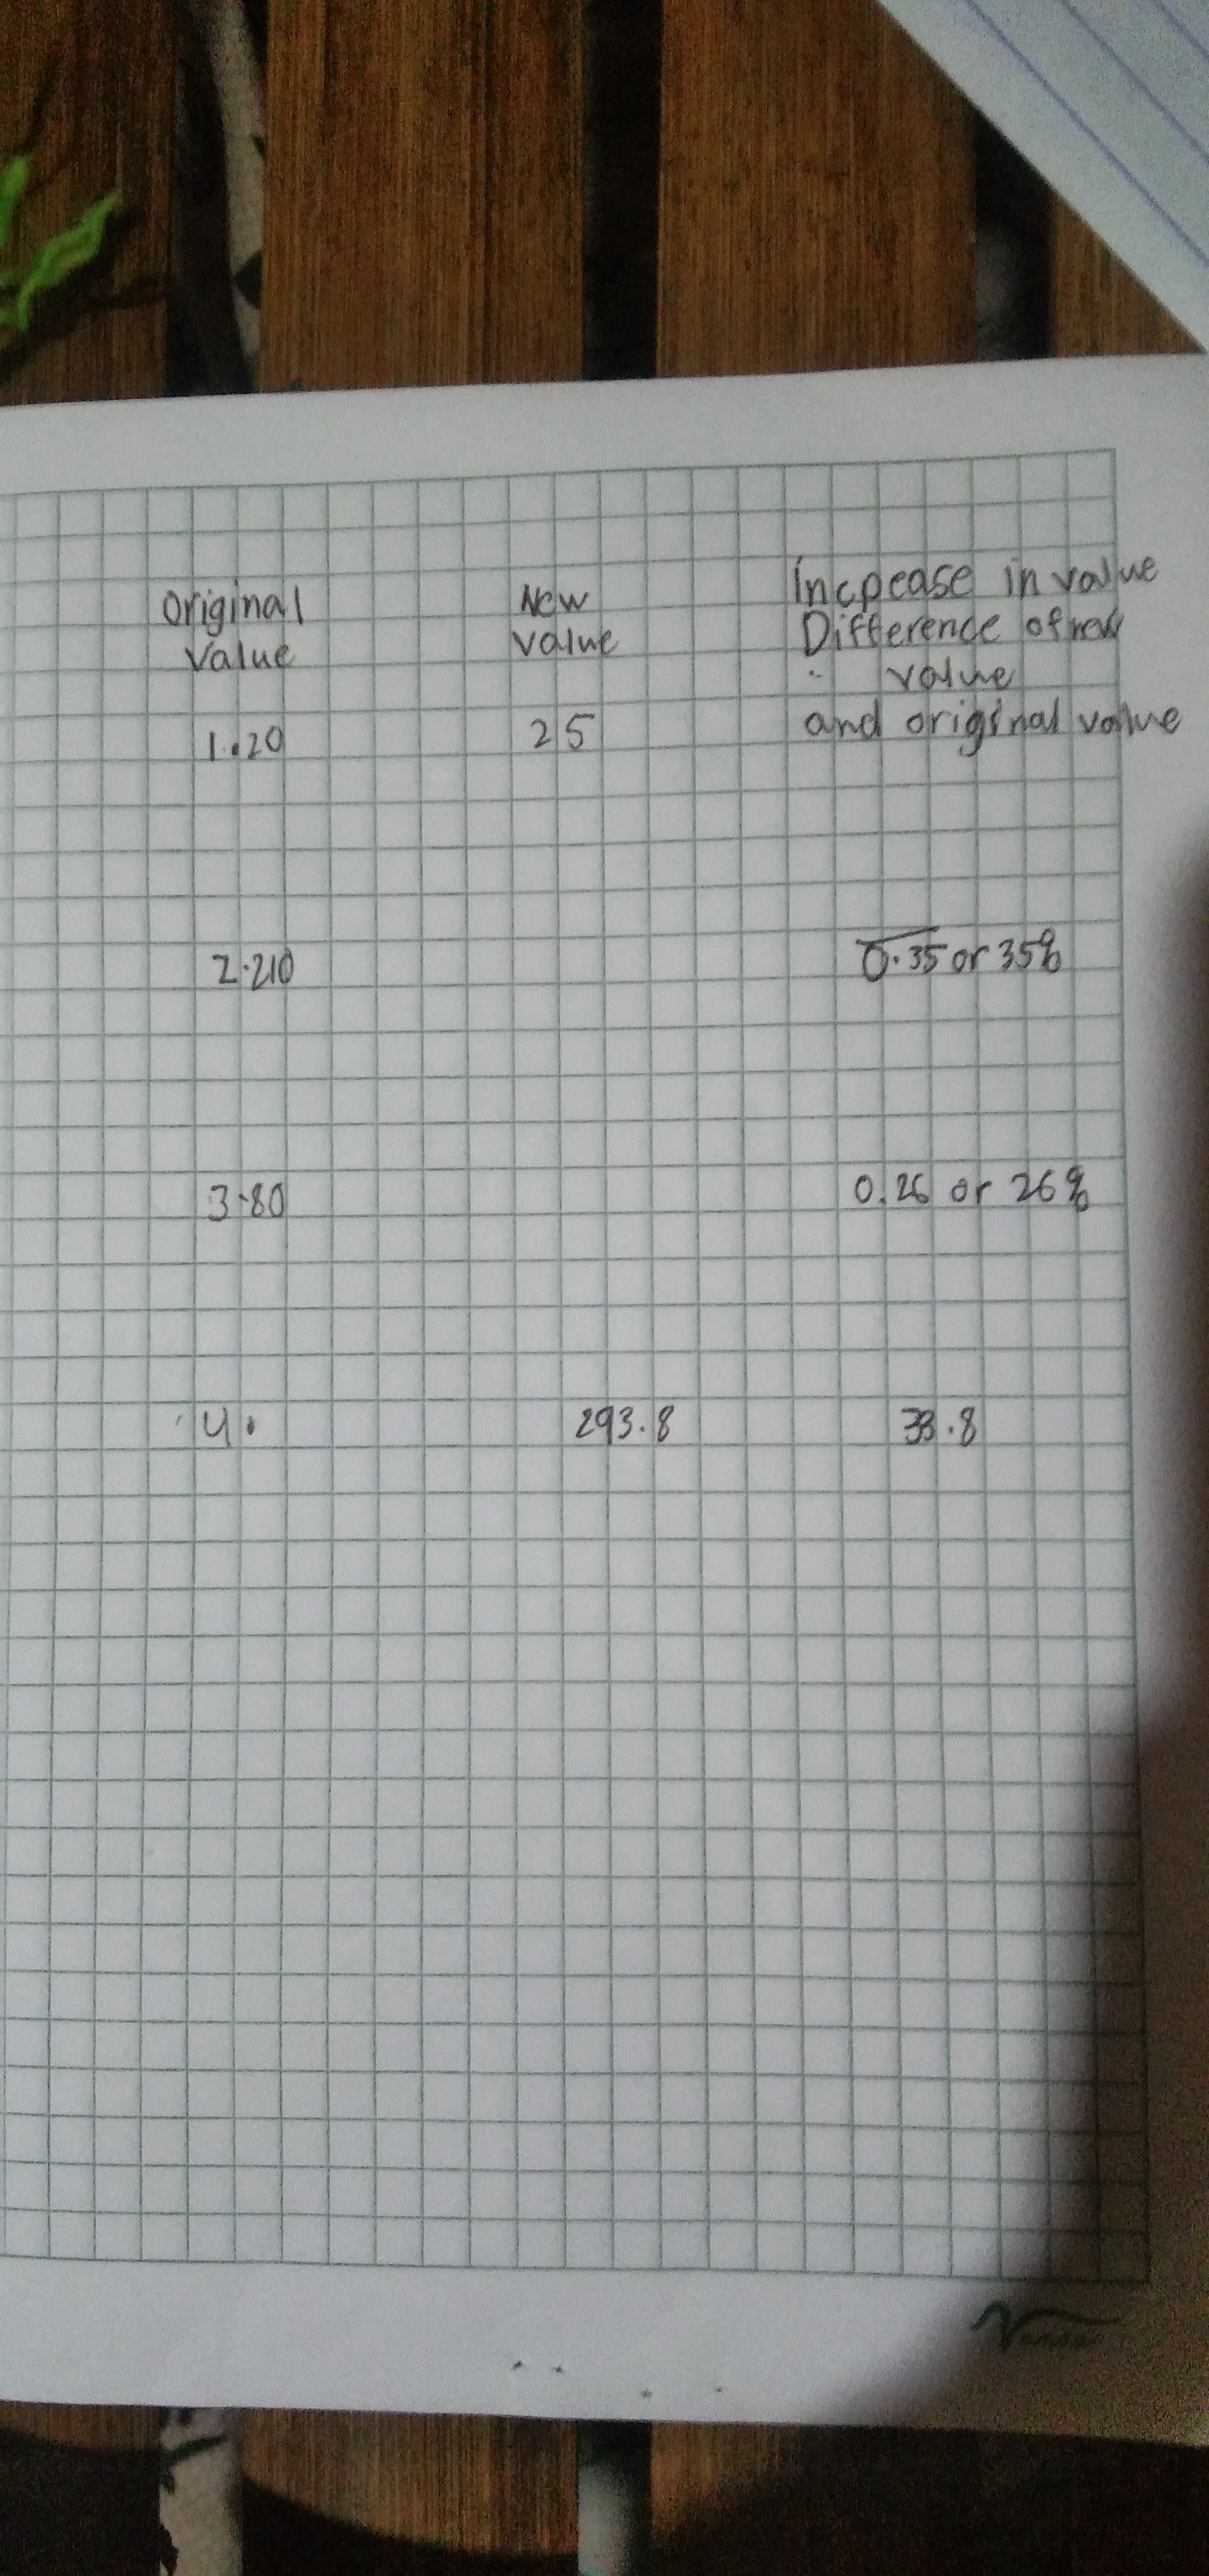 Original
Value
New
value
Increase in value
Difference of new
value
and original value
1.20
25
2.210
0.35 or 35%
3.80
0.26 or 26%
4.
293.8
33.8